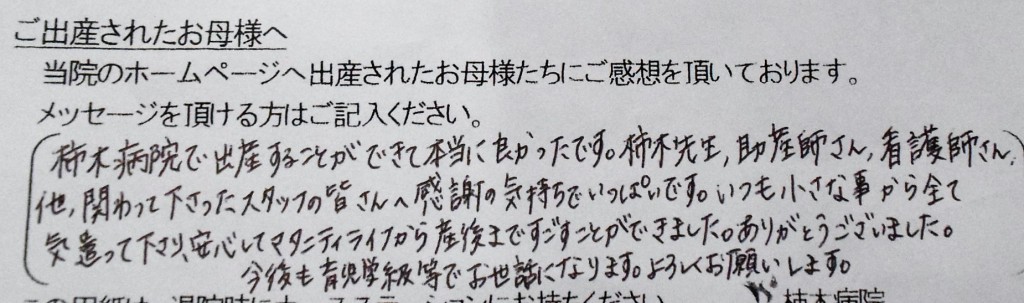 ご出産されたお母様へ
当院のホームページへ出産されたお母様たちにご感想を頂いております。
メッセージを頂ける方はご記入ください。
柿木病院で出産することができて本当に良かったです。柿木先生,助産師さん,看護師さん,
他,関わって下さったスタッフの皆さんへ感謝の気持ちでいっぱいです。いつも小さな事から全て
気遣って下さり、安心してマタニティライフから産後まですごすことができました。ありがとうございました。
今後も育児学級等でお世話になります。よろしくお願いします。
柿木病院